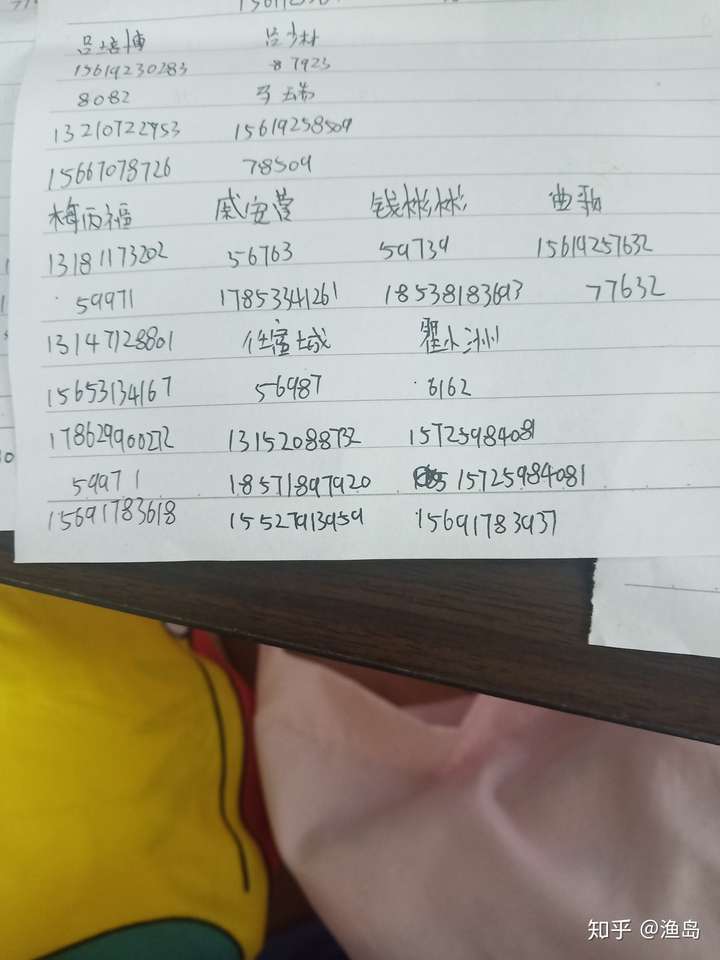 吕培博 吕少林
15619230283 87923
8082 马瑞
13210722953 15619258509
15667078726 78509
梅丙福 戚宝营 钱彬彬 曲歌
13181173202 56763 59739 15619257632
59971 17853341261 18538183693 77632
13147128801 任富城 瞿小洲
15653134167 56987 8162
178629900272 13152088732 15725984081
59971 18571897920 15725984081
15691783618 15527913959 15691783937
知乎 @渔岛